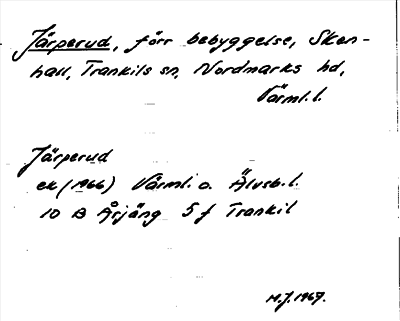 Järperud, förr bebyggelse, Sken-
hall, Trankils sn, Nordmarks hd,
Värml.l.
Järperud
ek (1966) Värml. o. Älvsb.l.
10 B Årjäng 5 f Trankil
M.J. 1967.